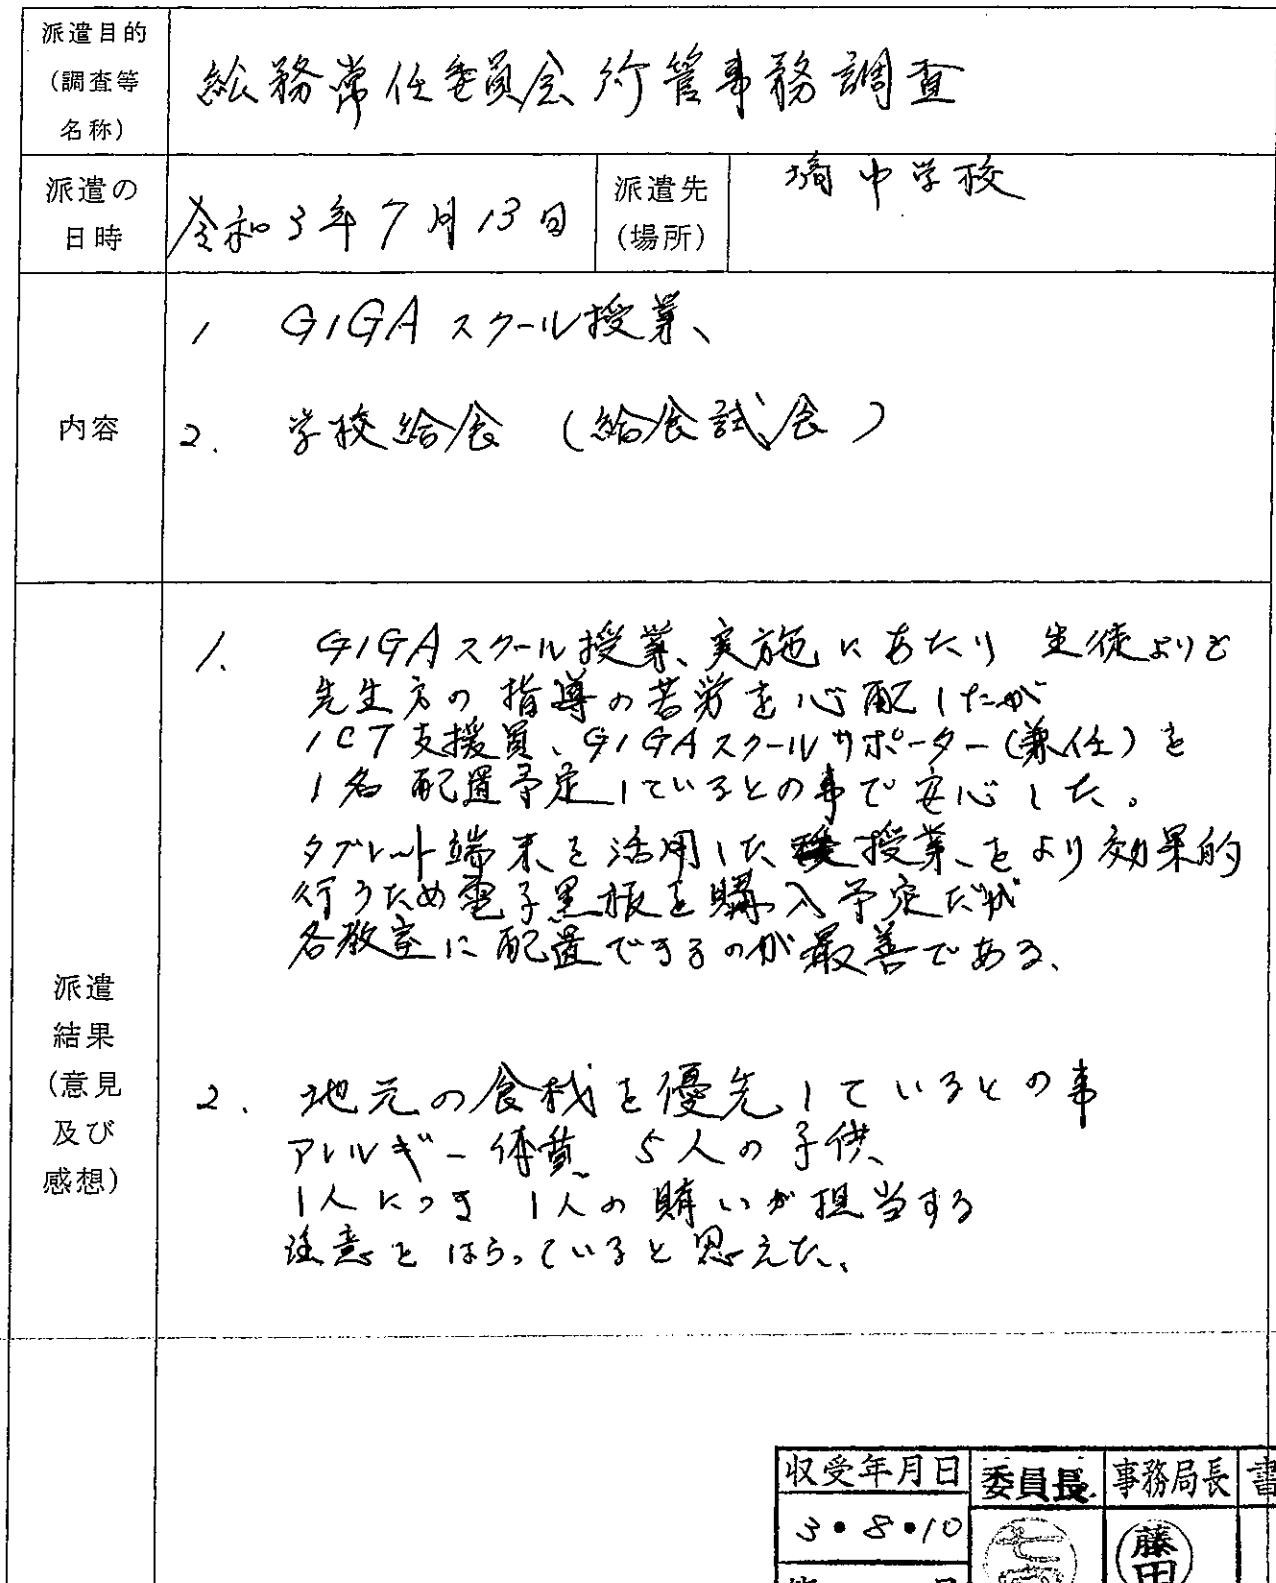 派遣目的
(調査等
名称)
総務常任委員会所管事務調査
派遣の
日時
令和3年7月13日
派遣先
(場所)
塙中学校
内容
1 GIGAスクール授業、
2. 学校給食 (給食試食)
派遣
結果
(意見
及び
感想)
1. GIGAスクール授業、実施にあたり 生徒よりも
先生方の指導の苦労を心配したが
ICT支援員、GIGAスクールサポーター(兼任)を
1名配置予定しているとの事で安心した。
タブレット端末を活用した授業をより効果的
行うため電子黒板を購入予定だが
各教室に配置できるのが最善である、
2. 地元の食材を優先しているとの事
アレルギー体質 5人の子供
1人につき 1人の賄いが担当する
注意をはらっていると思えた、
収受年月日
委員長
事務局長
3・8・10
藤田